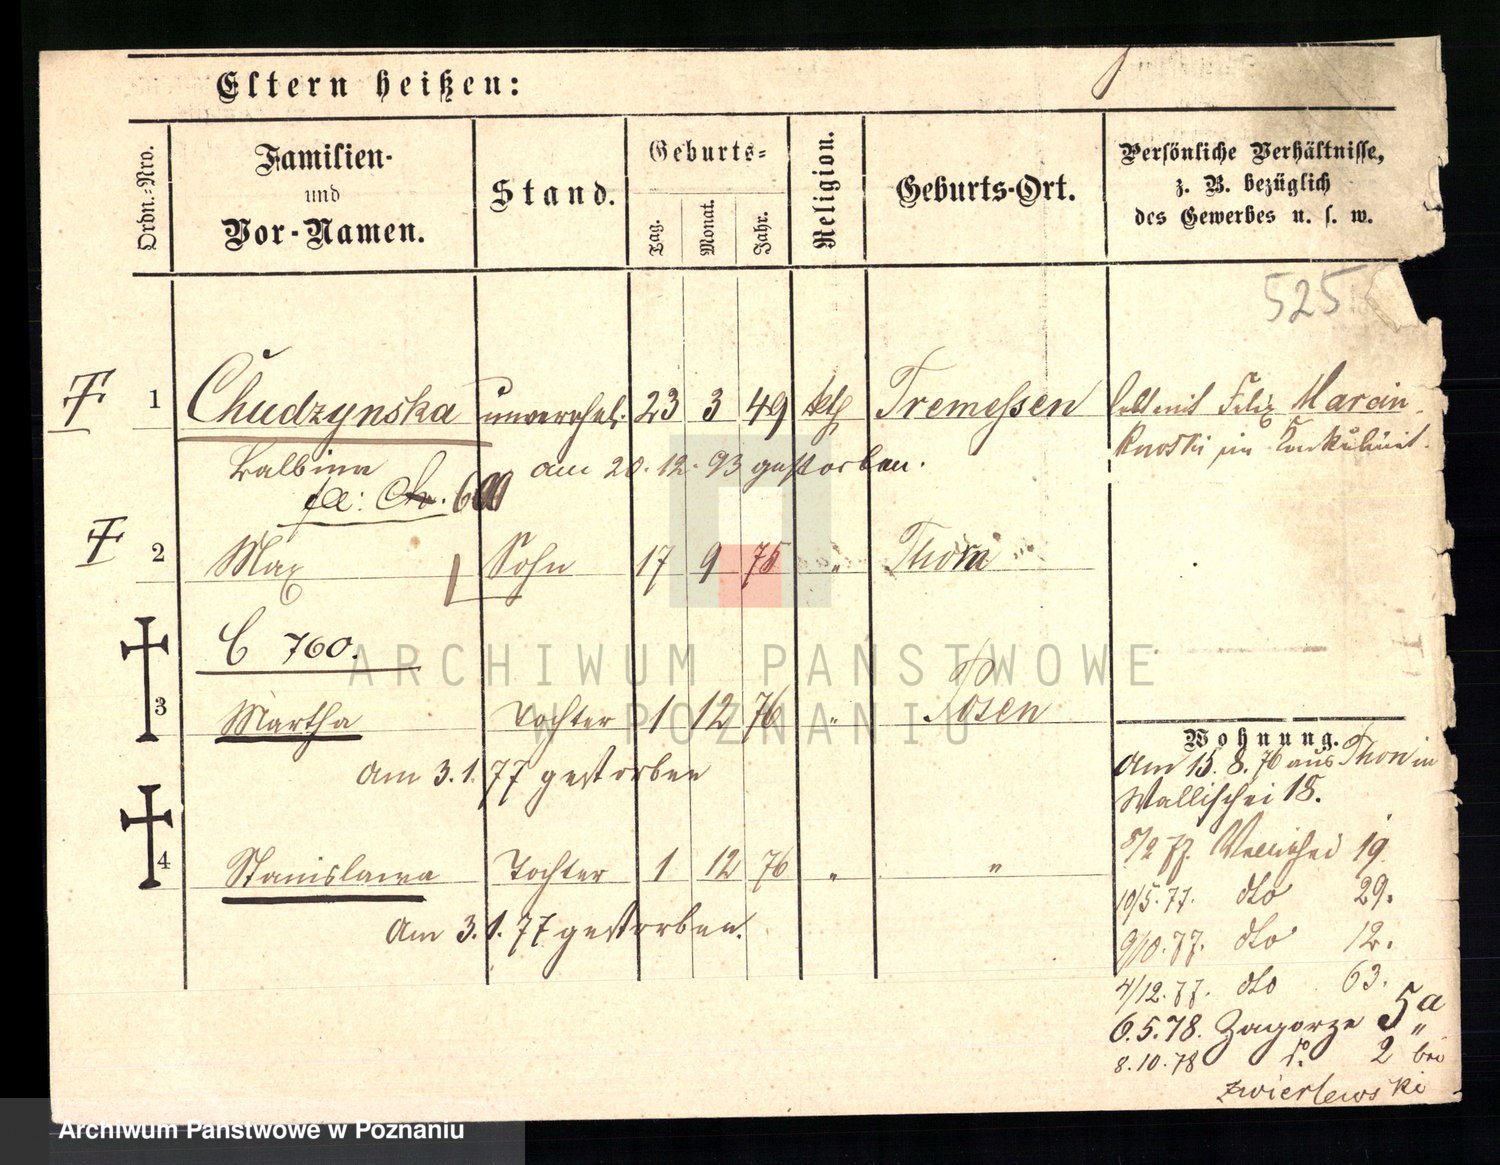 Eltern heißen:
Ordn.-Nro.
Familien-
und
Vor-Namen.
Stand.
Geburts-
Tag.
Monat.
Jahr.
Religion.
Geburts-Ort.
Persönliche Verhältnisse,
z. B. bezüglich
des Gewerbes u. s. w.
525
1 Chudzynska unverehel. 23 3 49 kth Tremessen lebt mit Felix Marcin-
kowski im Konkubinat.
Balbina am 20.12.93 gestorben.
2 Max Sohn 17 9 75 " Thorn
C 760.
3 Martha Tochter 1 12 76 " Posen
am 3.1.77 gestorben
4 Stanislawa Tochter 1 12 76 " "
am 3.1.77 gestorben.
Wohnung.
Am 15.8.76 aus Thorn in
Wallischei 18.
5/2 77. Wallischei 19
10/5.77. dto 29.
9/10.77. dto 12.
4/12.77. dto 63.
6.5.78. Zagorze 5a
8.10.78 do. 2 bei
Zwierlewski
ARCHIWUM PAŃSTWOWE
W POZNANIU
Archiwum Państwowe w Poznaniu